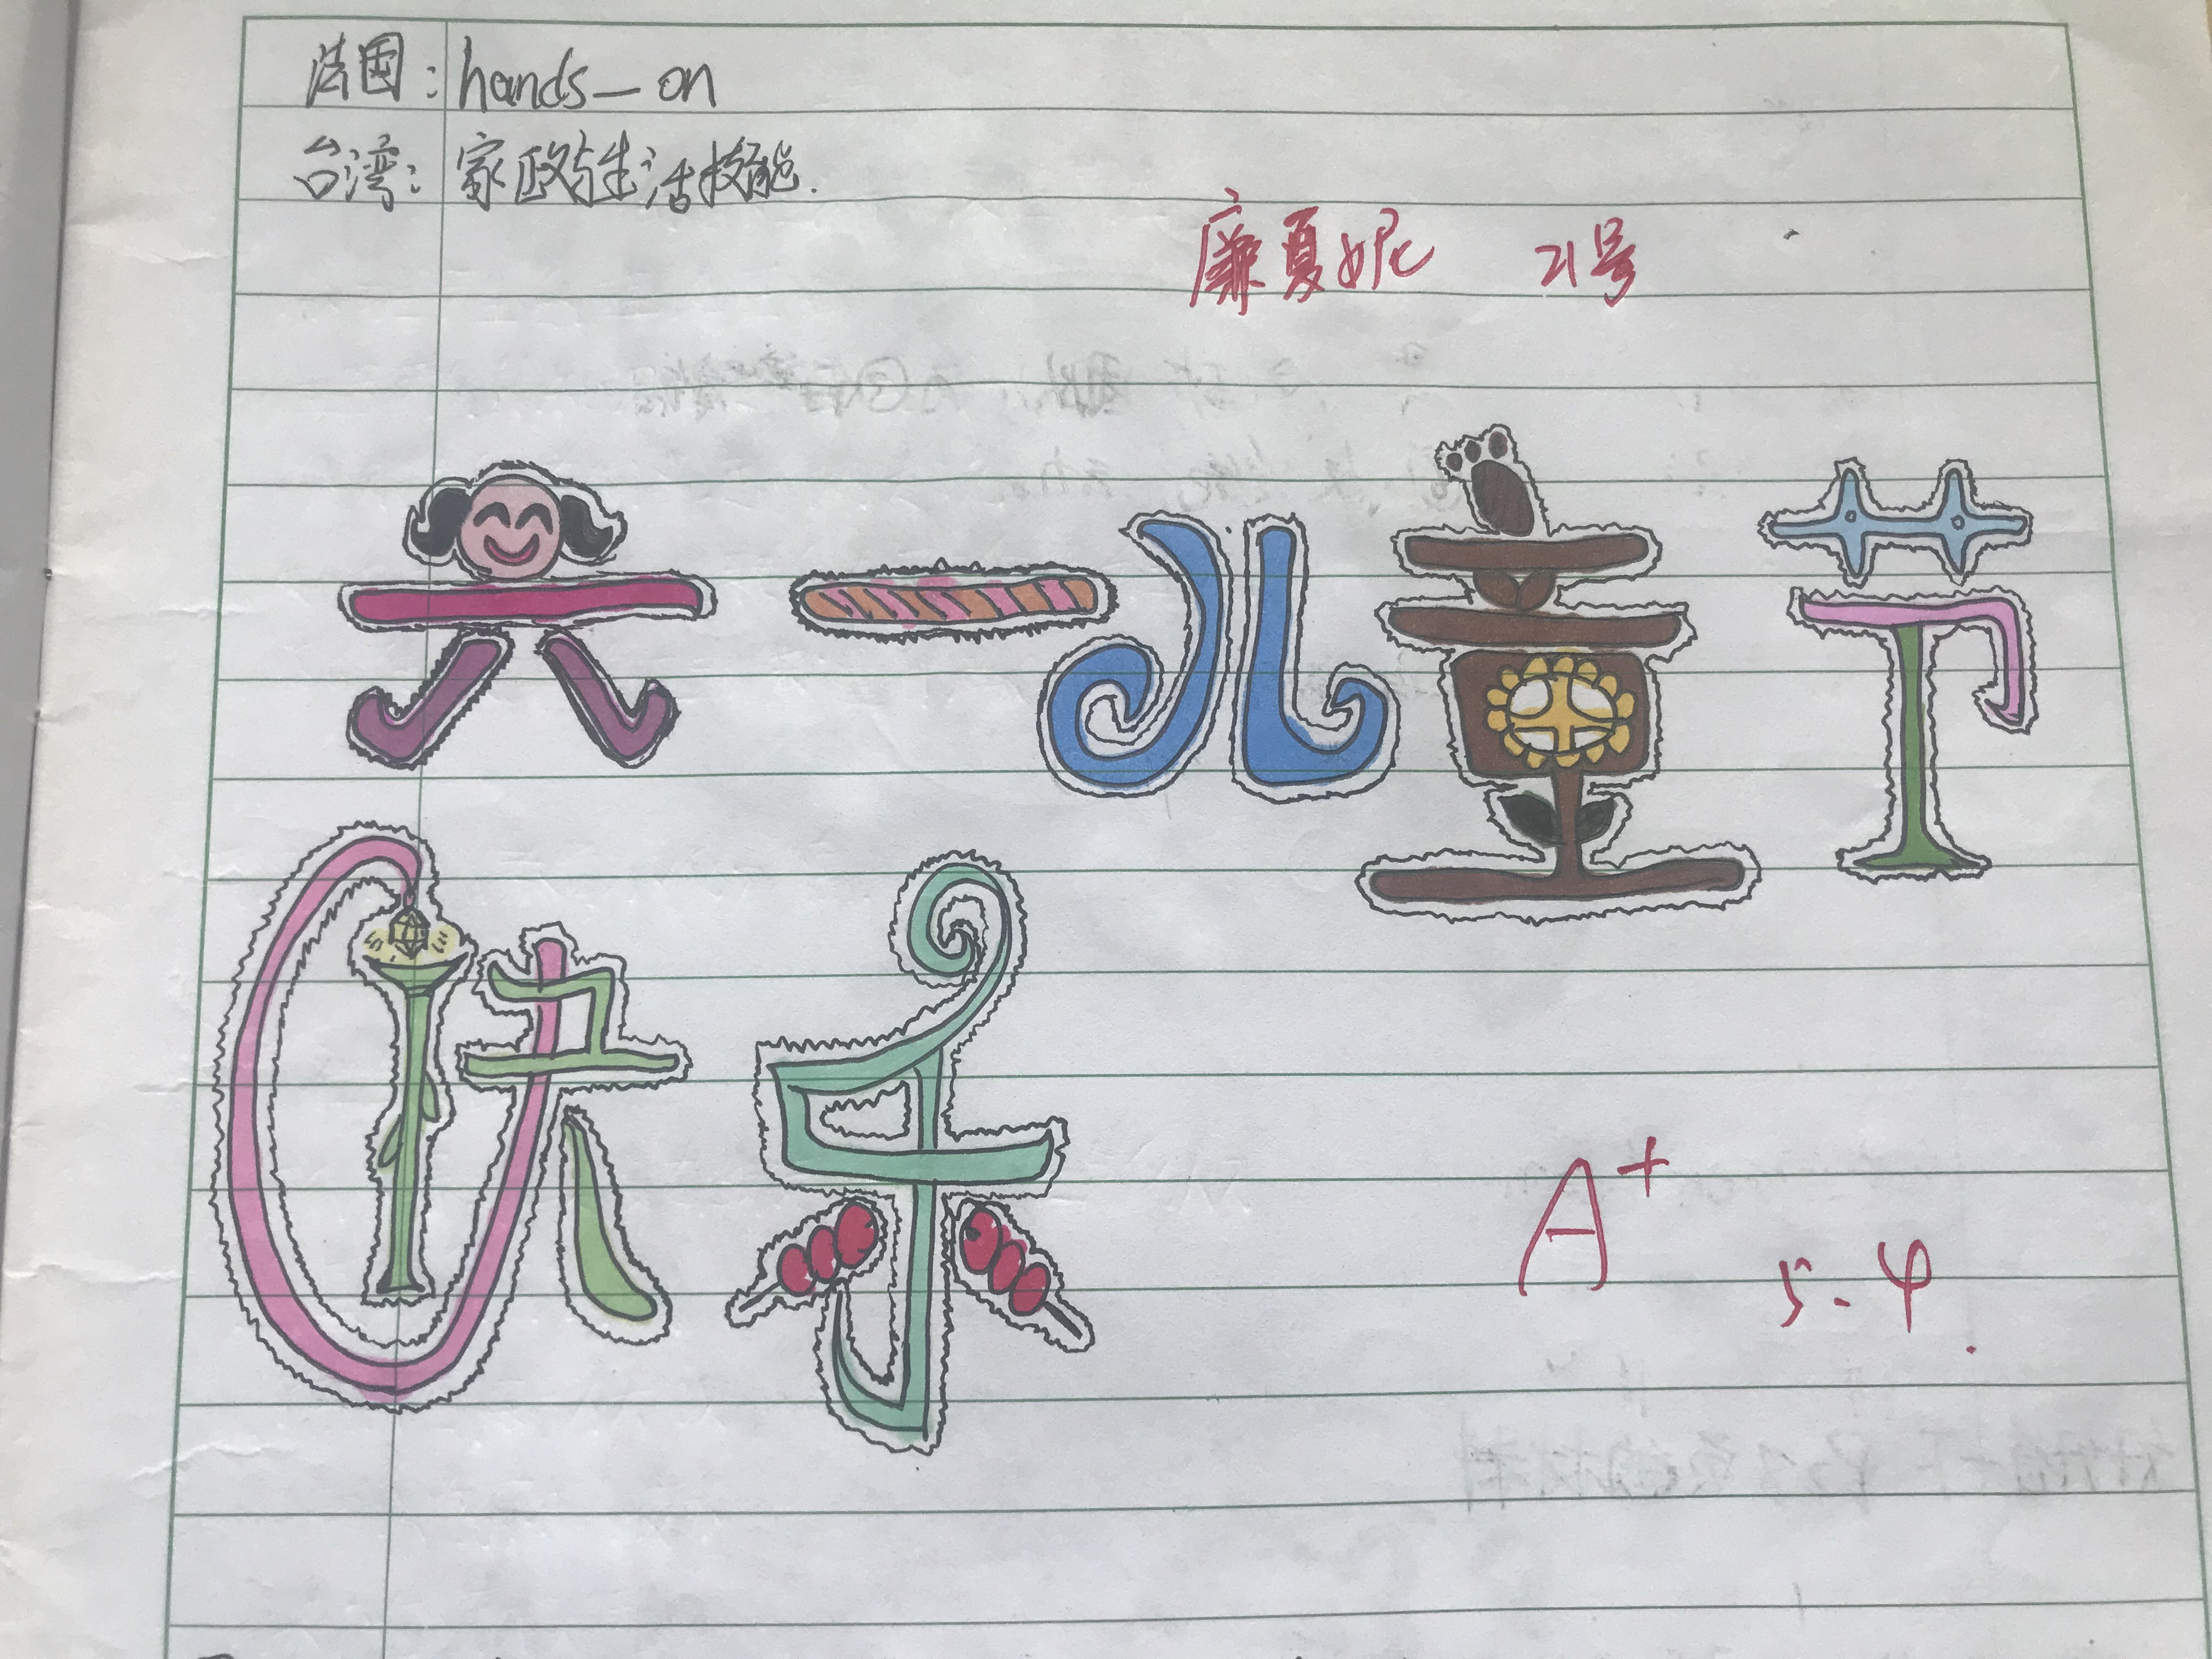 法国：hands-on
台湾：家政与生活技能.
廉夏妮 21号
六一儿童节
快乐
A+
5.4